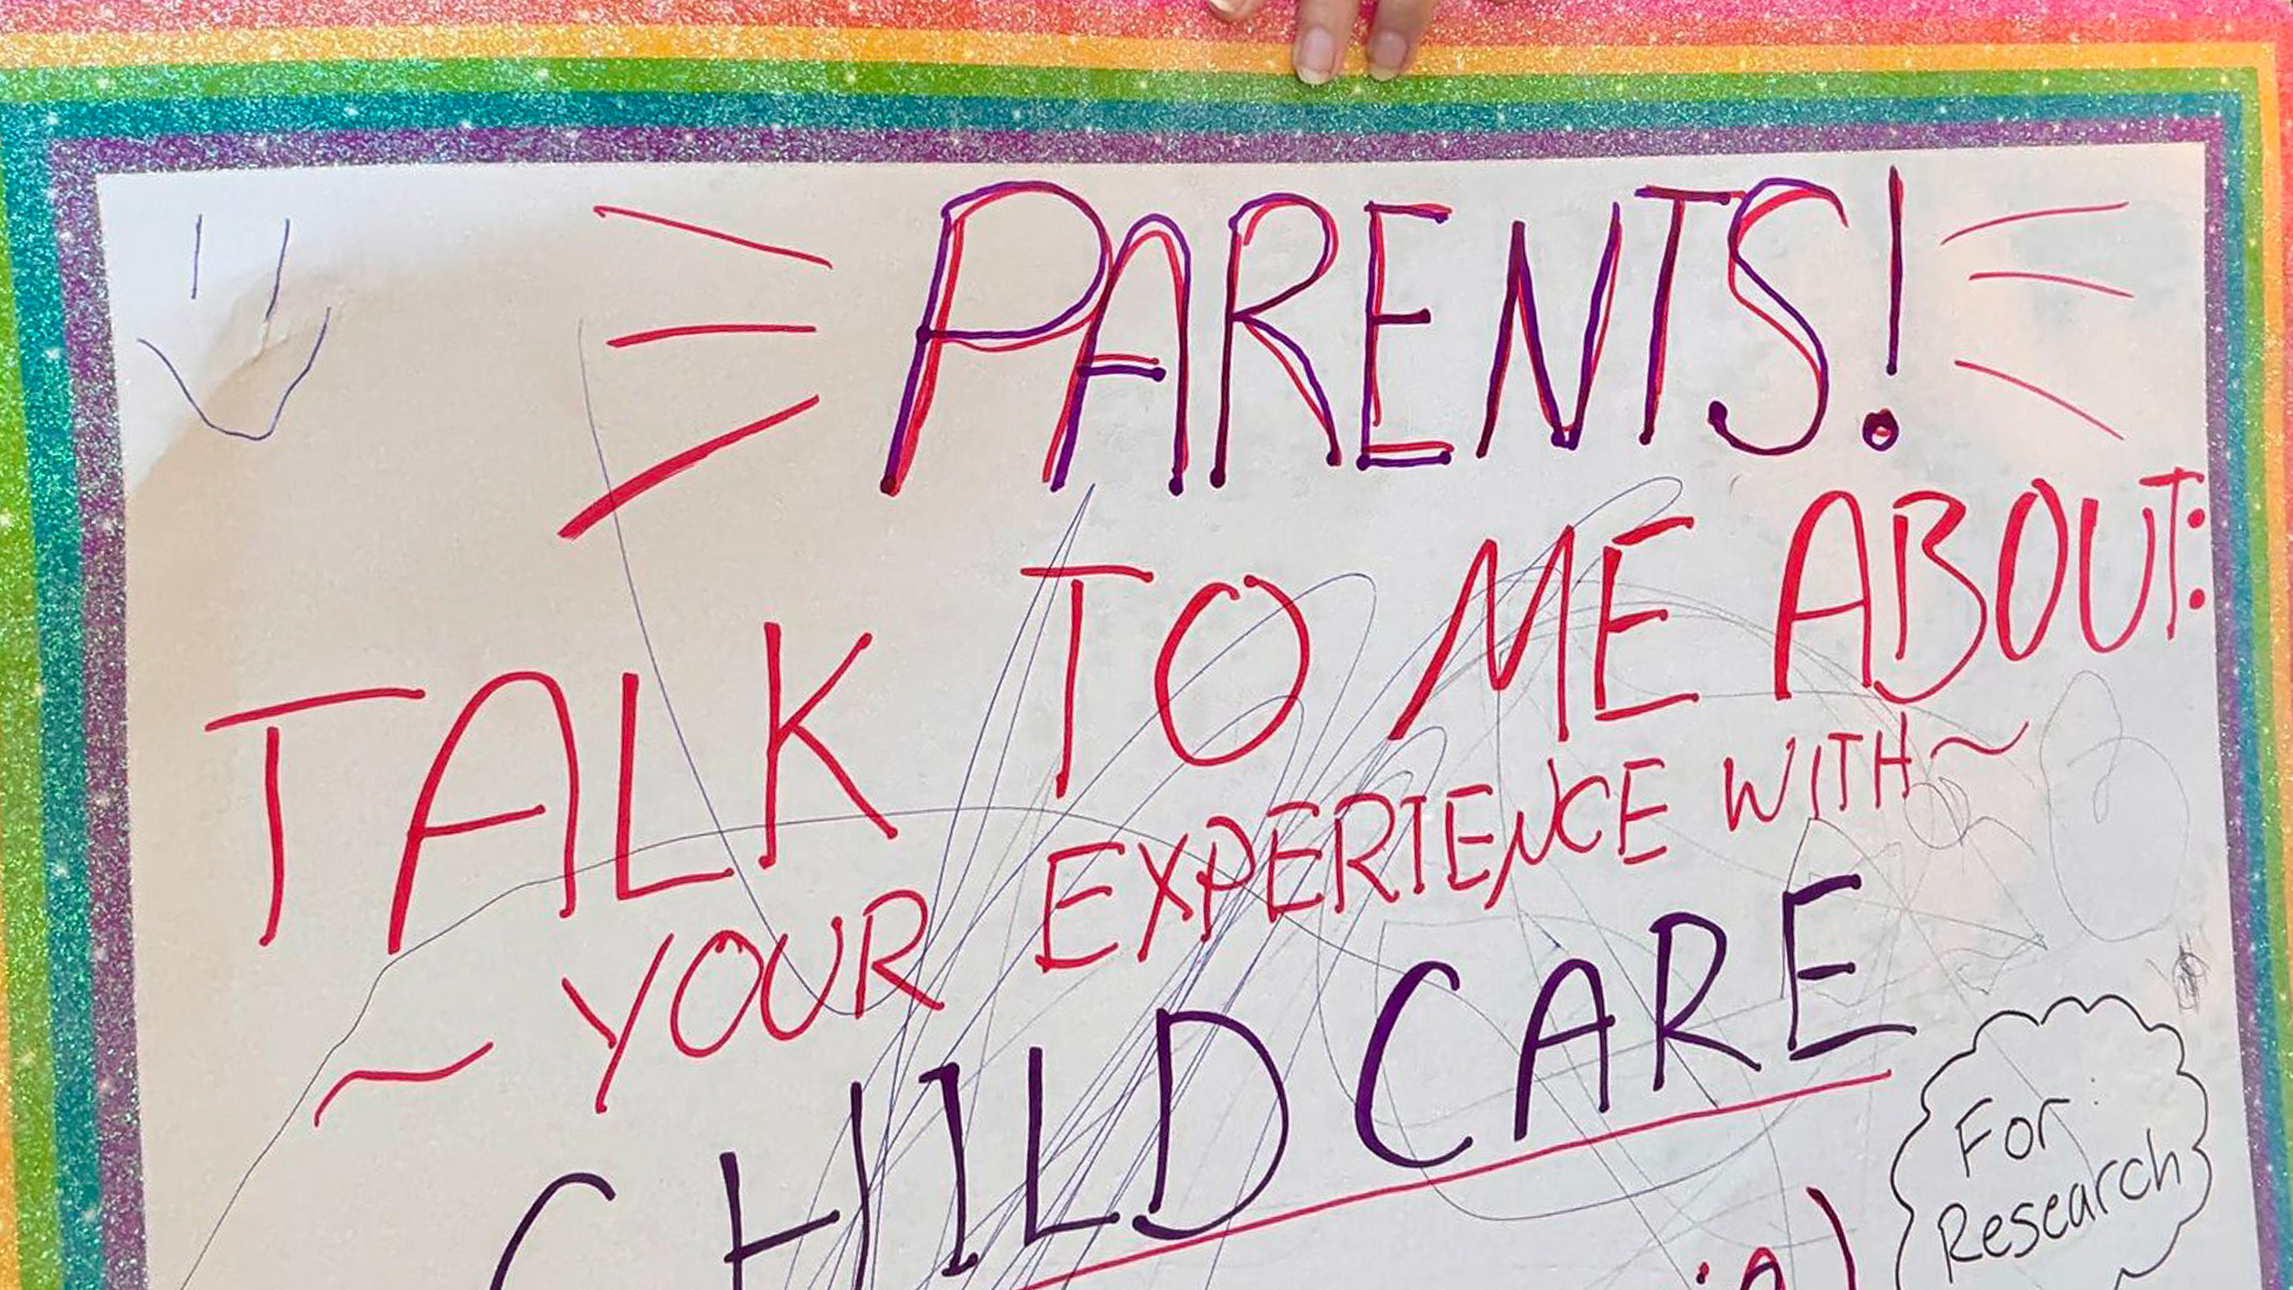 PARENTS!
TALK TO ME ABOUT:
~ YOUR EXPERIENCE WITH ~
CHILD CARE
For
Research